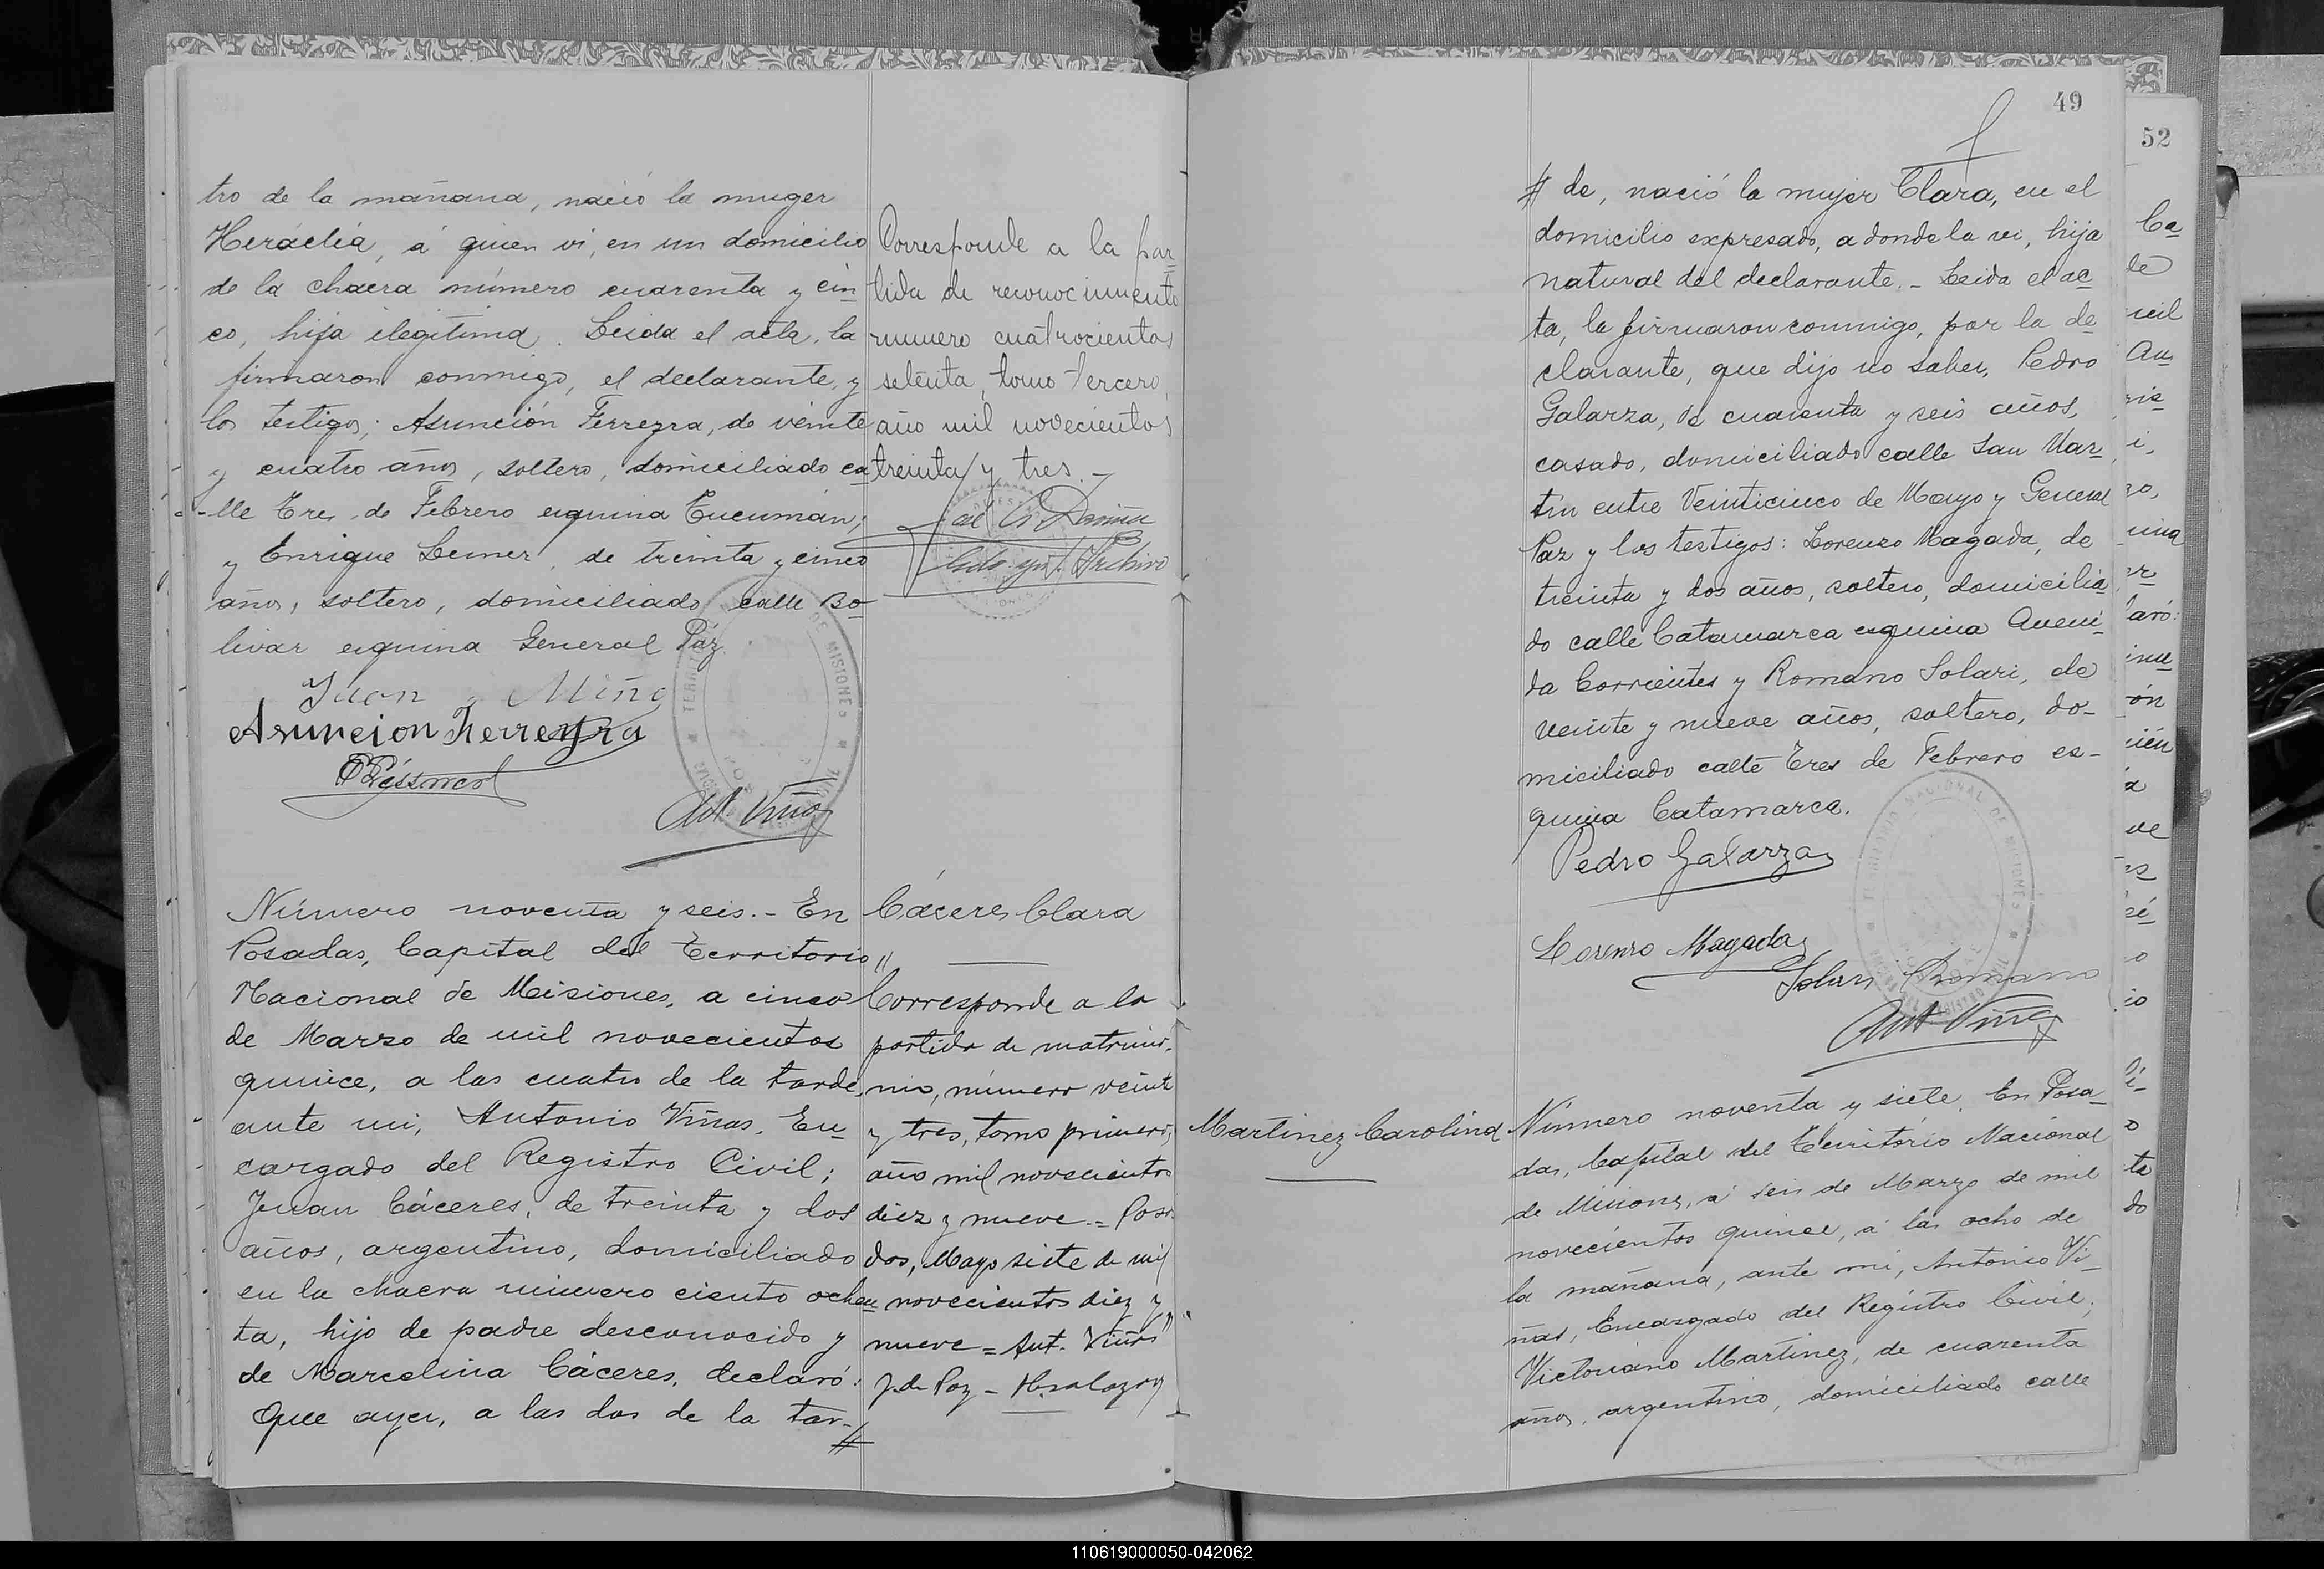 tro de la mañana, nació la muger
Heráclia, á quien vi, en un domicilio
de la chacra número cuarenta y cin
co, hija ilegitima. Leida el acta, la
firmaron conmigo, el declarante, y
los testigos; Asunción Ferreyra, de veinte
y cuatro años, soltero, domiciliado ca
-lle Tres de Febrero esquina Tucumán;
y Enrique de treinta y cinco
años, soltero, domiciliado calle Bo-
livar esquina General Páz.
Juan Miño
Asuncion Ferreyra
Ant Viñas
Corresponde a la par
tida de reconocimiento
numero cuatrocientos
setenta, tomo tercero,
año mil novecientos
treinta y tres.-
Archivo
Número noventa y seis.- En
Posadas, Capital del Territorio
Nacional de Misiones, a cinco
de Marzo de mil novecientos
quince, a las cuatro de la tarde,
ante mi, Antonio Viñas, En-
cargado del Registro Civil;
Juan Cáceres, de treinta y dos
años, argentino, domiciliado
en la chacra número ciento ochen
ta, hijo de padre desconocido y
de Marcelina Cáceres, declaró:
Que ayer, a las dos de la tar-//
Cáceres Clara
Corresponde a la
partida de matrimo-
nio, número veinte
y tres, tomo primero,
año mil novecientos
diez y nueve.= Posa-
das, Mayo siete de mil
novecientos diez y
nueve = Ant. Viñas
J. de Paz - H. Salazar
49
// de, nació la mujer Clara, en el
domicilio expresado, a donde la vi, hija
natural del declarante.- Leida el ac
ta, la firmaron conmigo, por la de
clarante, que dijo no saber, Pedro
Galarza, de cuarenta y seis años,
casado, domiciliado calle San Mar
tin entre Veinticinco de Mayo y General
Paz y los testigos: Lorenzo Magada, de
treinta y dos años, soltero, domicilia
do calle Catamarca esquina Aveni
da Corrientes y Romano Solari, de
veinte y nueve años, soltero, do-
miciliado calle Tres de Febrero es-
quina Catamarca.
Pedro Galarza
Lorenzo Magada
Solari Romano
Ant Viñas
Martinez Carolina
Número noventa y siete. En Posa-
das, Capital del Territorio Nacional
de Misiones, a seis de Marzo de mil
novecientos quince, a las ocho de
la mañana, ante mi, Antonio Vi-
ñas, Encargado del Registro Civil,
Victoriano Martinez, de cuarenta
años, argentino, domiciliado calle
52
110619000050-042062